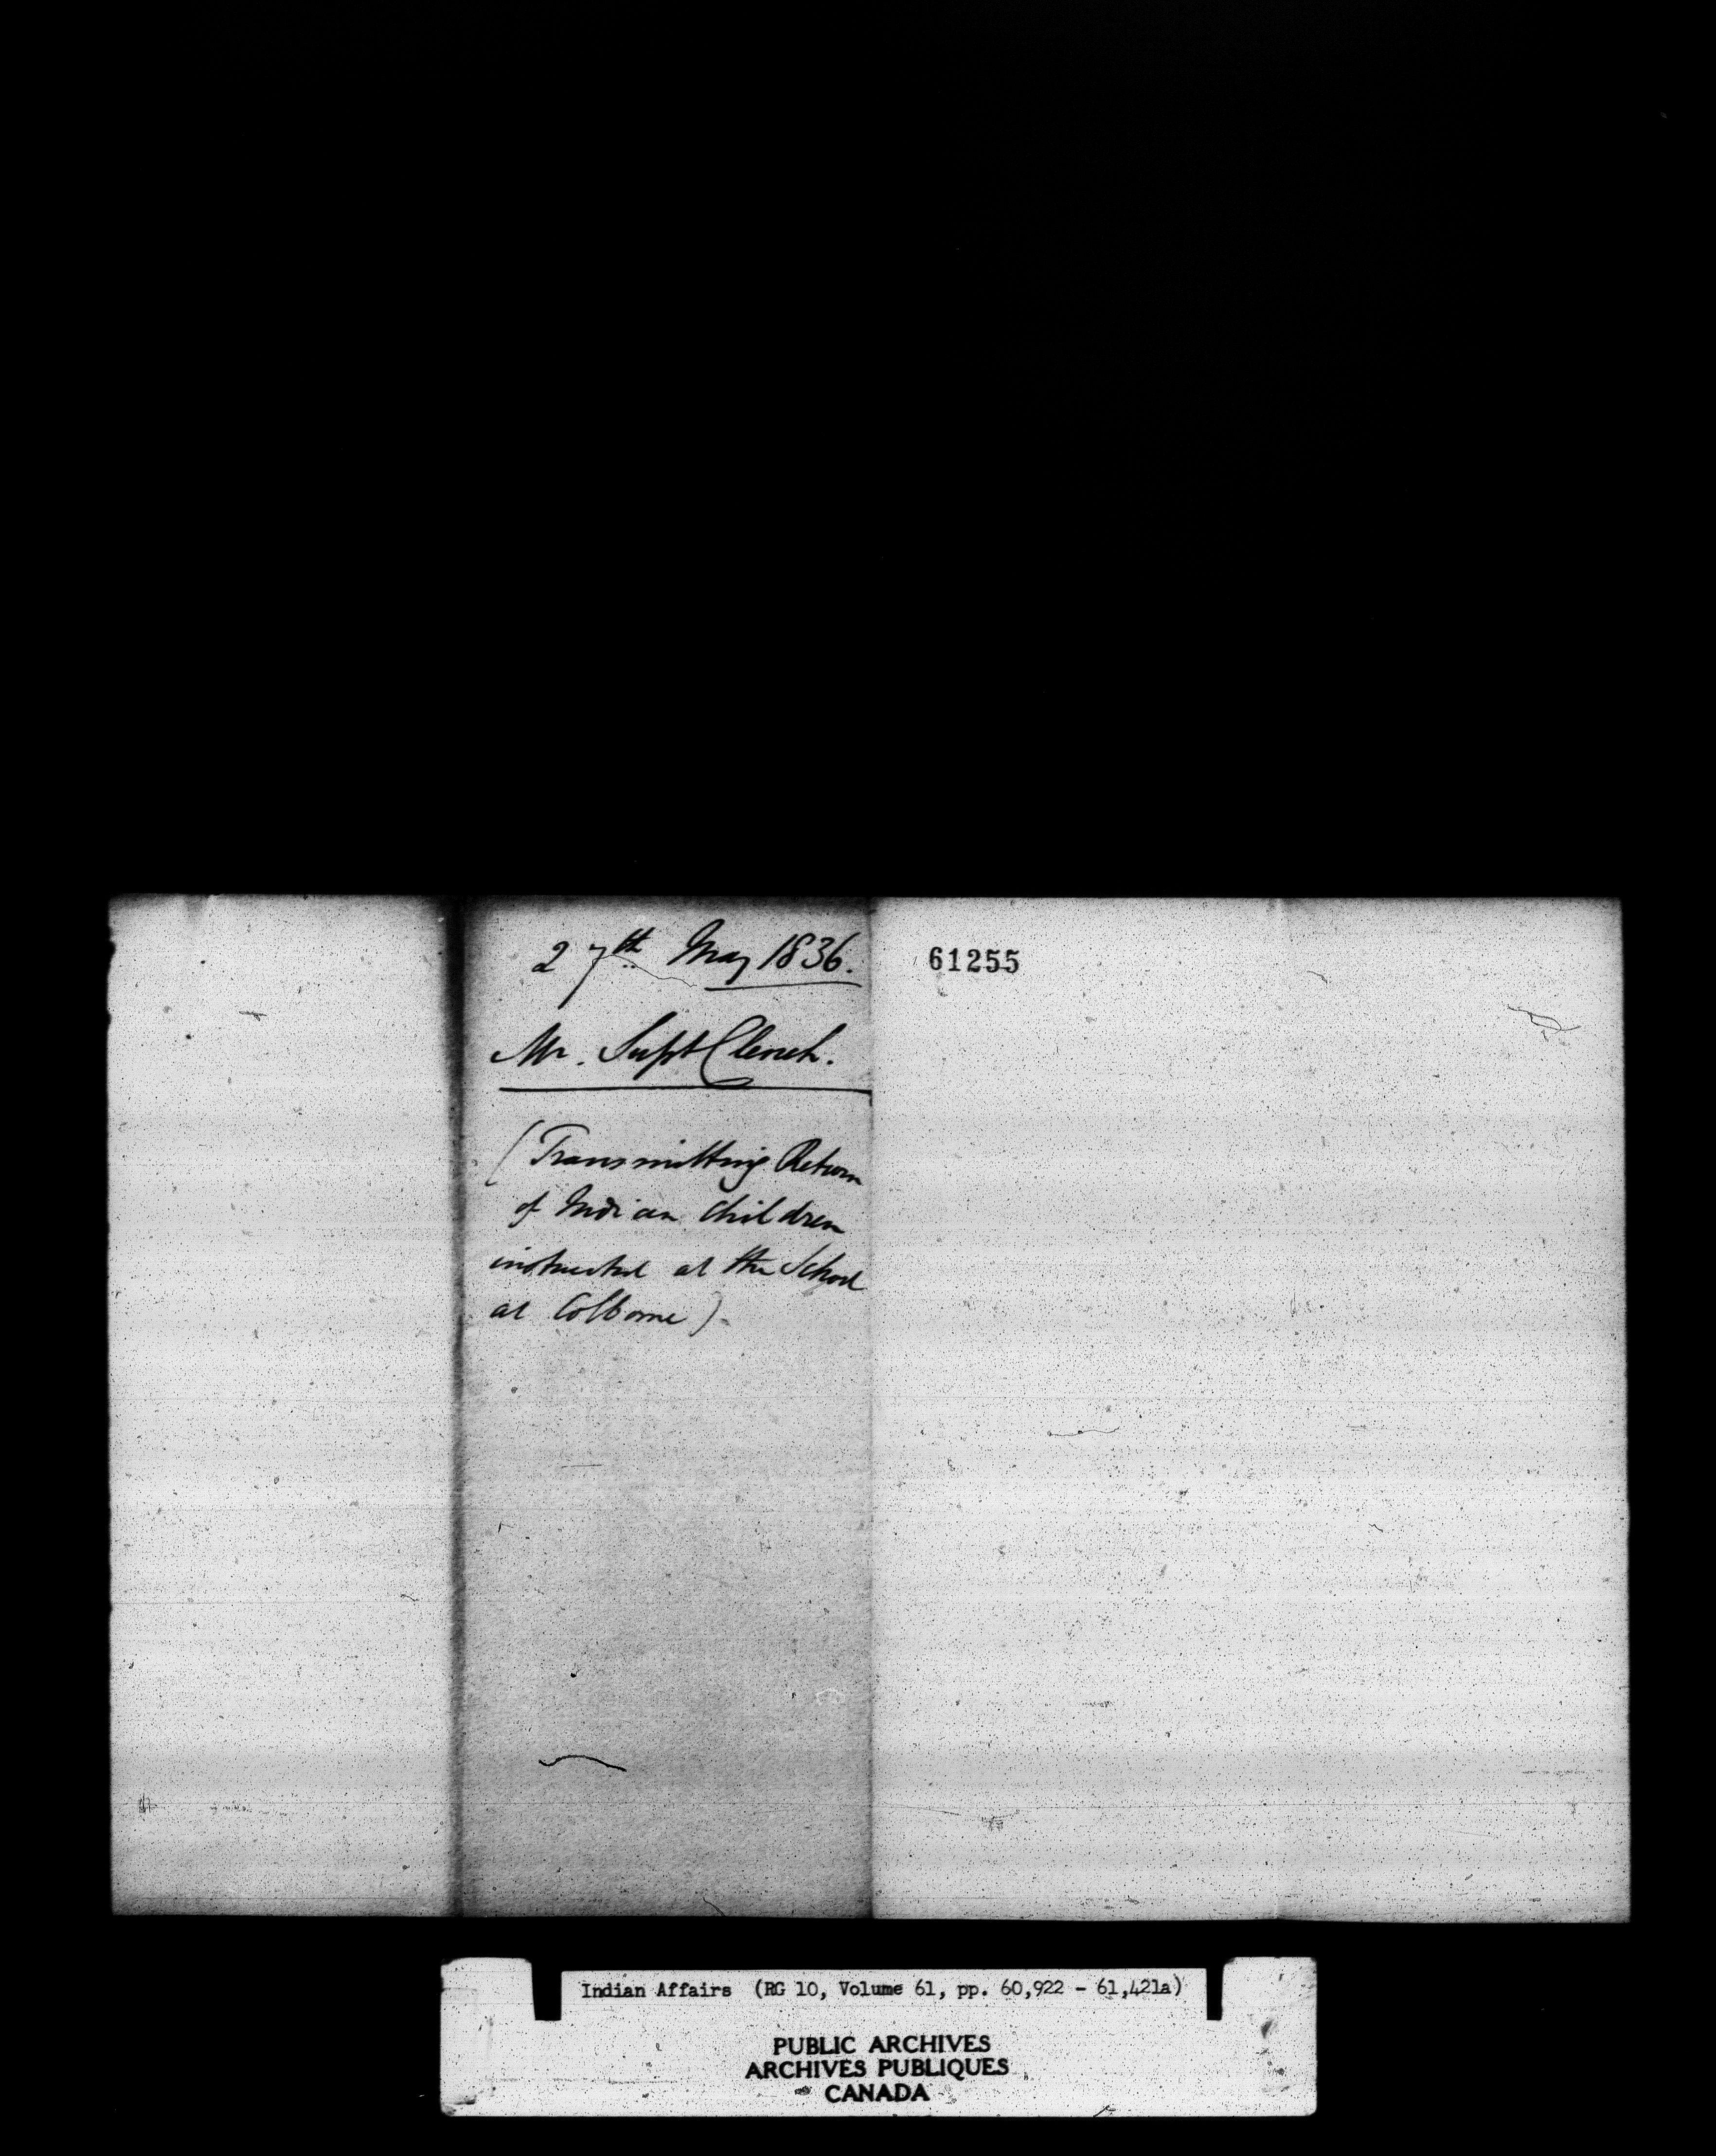 27th May 1836.
Mr. Supt Clench.
(Transmitting Return
of Indian Children
instructed at the School
at Colborne).
61255
Indian Affairs (RG 10, Volume 61, pp. 60,922 - 61,421a)
PUBLIC ARCHIVES
ARCHIVES PUBLIQUES
CANADA